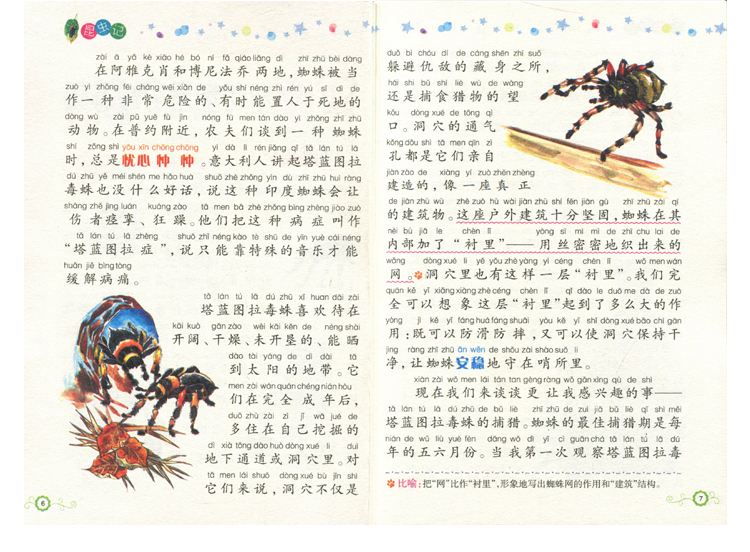 昆虫记
zài ā yǎ kè xiāo hé bó ní fǎ qiáo liǎng dì zhī zhū bèi dàng
在阿雅克肖和博尼法乔两地，蜘蛛被当
zuò yì zhǒng fēi cháng wēi xiǎn de yǒu shí néng zhì rén yú sǐ dì de
作一种非常危险的、有时能置人于死地的
dòng wù zài pǔ yuē fù jìn nóng fū men tán dào yì zhǒng zhī zhū
动物。在普约附近，农夫们谈到一种蜘蛛
shí zǒng shì yōu xīn chōng chōng yì dà lì rén jiǎng qǐ tǎ lán tú lā
时，总是忧心忡忡。意大利人讲起塔蓝图拉
dú zhū yě méi shén me hǎo huà shuō zhè zhǒng yìn dù zhī zhū huì ràng
毒蛛也没什么好话，说这种印度蜘蛛会让
shāng zhě jìng luán kuáng zào tā men bǎ zhè zhǒng bìng zhèng jiào zuò
伤者痉挛、狂躁。他们把这种病症叫作
tǎ lán tú lā zhèng shuō zhǐ néng kào tè shū de yīn yuè cái néng
“塔蓝图拉症”，说只能靠特殊的音乐才能
huǎn jiě bìng tòng
缓解病痛。
tǎ lán tú lā dú zhū xǐ huan dāi zài
塔蓝图拉毒蛛喜欢待在
kāi kuò gān zào wèi kāi kěn de néng shài
开阔、干燥、未开垦的、能晒
dào tài yáng de dì dài tā
到太阳的地带。它
men zài wán quán chéng nián hòu
们在完全成年后，
duō zhù zài zì jǐ wā jué de
多住在自己挖掘的
dì xià tōng dào huò dòng xué li duì
地下通道或洞穴里。对
tā men lái shuō dòng xué bù jǐn shì
它们来说，洞穴不仅是
6
duǒ bì chóu dí de cáng shēn zhī suǒ
躲避仇敌的藏身之所，
hái shì bǔ shí liè wù de wàng
还是捕食猎物的望
kǒu dòng xué de tōng qì
口。洞穴的通气
kǒng dōu shì tā men qīn zì
孔都是它们亲自
jiàn zào de xiàng yí zuò zhēn zhèng
建造的，像一座真正
de jiàn zhù wù zhè zuò hù wài jiàn zhù shí fēn jiān gù zhī zhū zài qí
的建筑物。这座户外建筑十分坚固，蜘蛛在其
nèi bù jiā le chèn lǐ yòng sī mì mì de zhī chu lai de
内部加了“衬里”——用丝密密地织出来的
wǎng dòng xué li yě yǒu zhè yàng yì céng chèn lǐ wǒ men wán
网。洞穴里也有这样一层“衬里”。我们完
quán kě yǐ xiǎng xiàng zhè céng chèn lǐ qǐ dào le duō me dà de zuò
全可以想象这层“衬里”起到了多么大的作
yòng jì kě yǐ fáng huá fáng shuāi yòu kě yǐ shǐ dòng xué bǎo chí gān
用：既可以防滑防摔，又可以使洞穴保持干
jìng ràng zhī zhū ān wěn de shǒu zài shào suǒ li
净，让蜘蛛安稳地守在哨所里。
xiàn zài wǒ men lái tán tan gèng ràng wǒ gǎn xìng qù de shì
现在我们来谈谈更让我感兴趣的事——
tǎ lán tú lā dú zhū de bǔ liè zhī zhū de zuì jiā bǔ liè qī shì měi
塔蓝图拉毒蛛的捕猎。蜘蛛的最佳捕猎期是每
nián de wǔ liù yuè fèn dāng wǒ dì yī cì guān chá tǎ lán tú lā dú
年的五六月份。当我第一次观察塔蓝图拉毒
比喻：把“网”比作“衬里”，形象地写出蜘蛛网的作用和“建筑”结构。
7